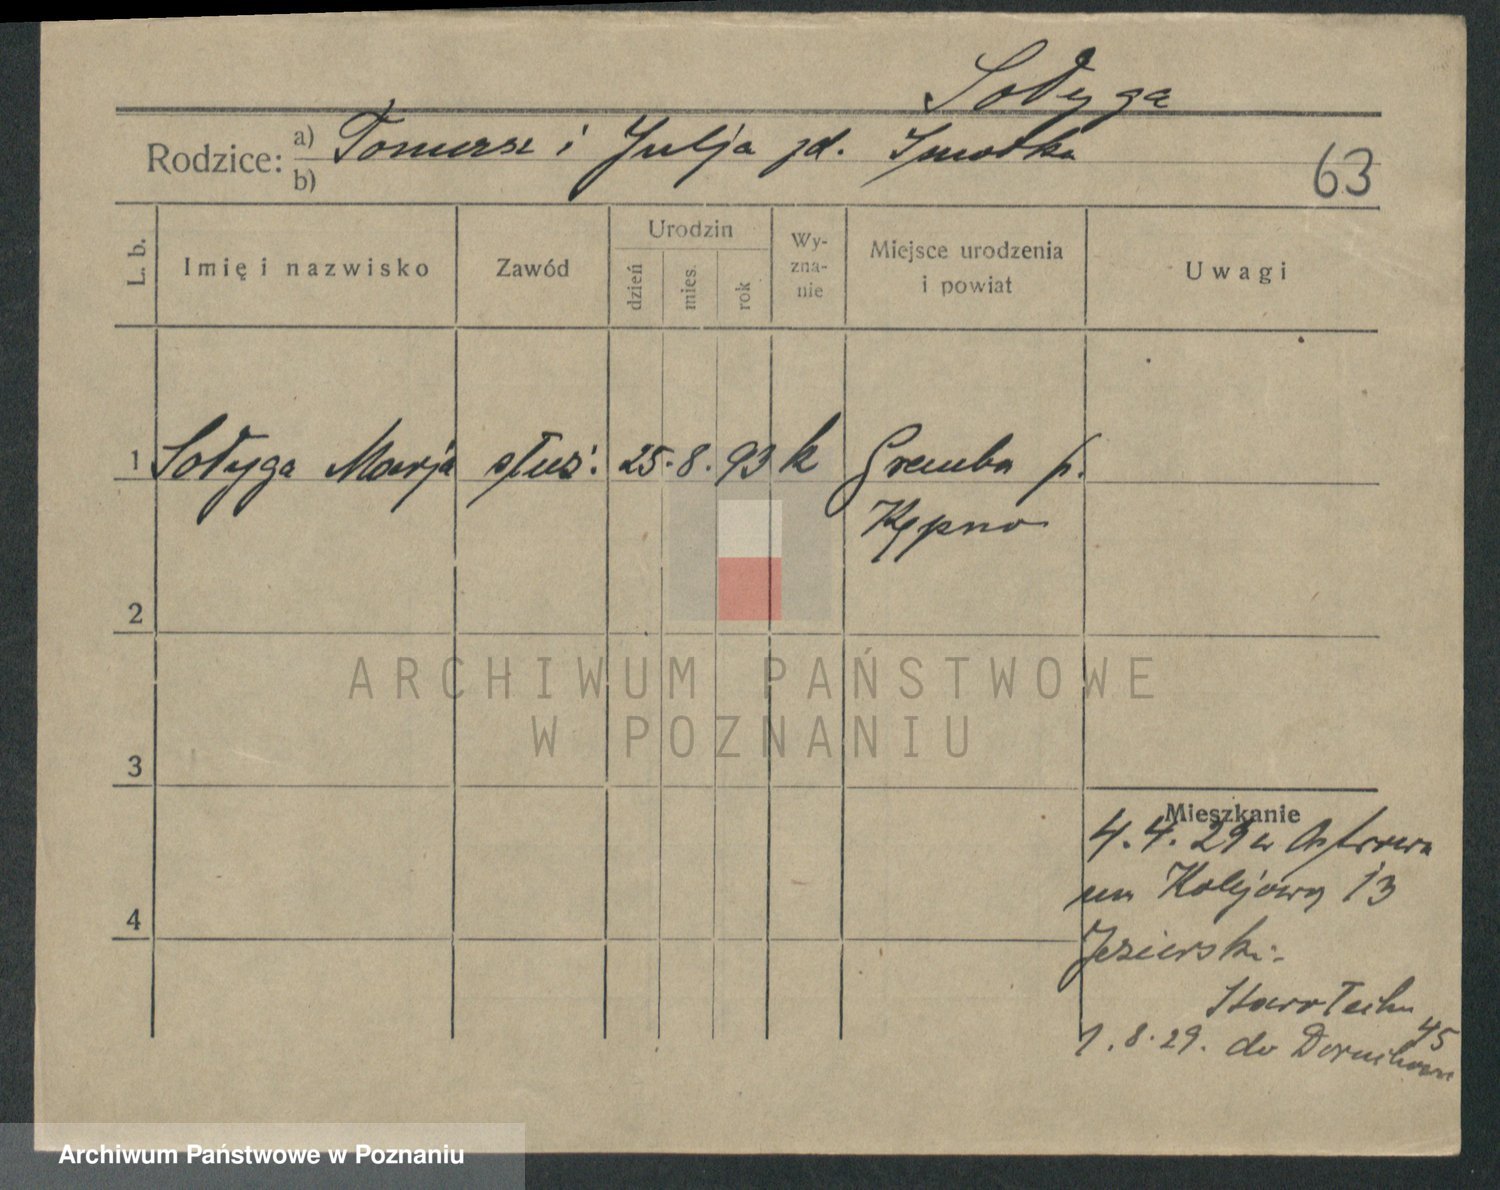 Sołyga
Rodzice: a) Tomasz i Julja zd. Smołka
b)
63
L. b.
Imię i nazwisko
Zawód
Urodzin
dzień
mies.
rok
Wy-
zna-
nie
Miejsce urodzenia
i powiat
Uwagi
1 Sołyga Marja służ. 25. 8. 93 k Gremba p.
Kępno
2
ARCHIWUM PAŃSTWOWE
W POZNANIU
3
Mieszkanie
4. 4. 29 z Ostrowa
na Kolejową 13
4
Jezierski
45
1. 8. 29. do
Archiwum Państwowe w Poznaniu